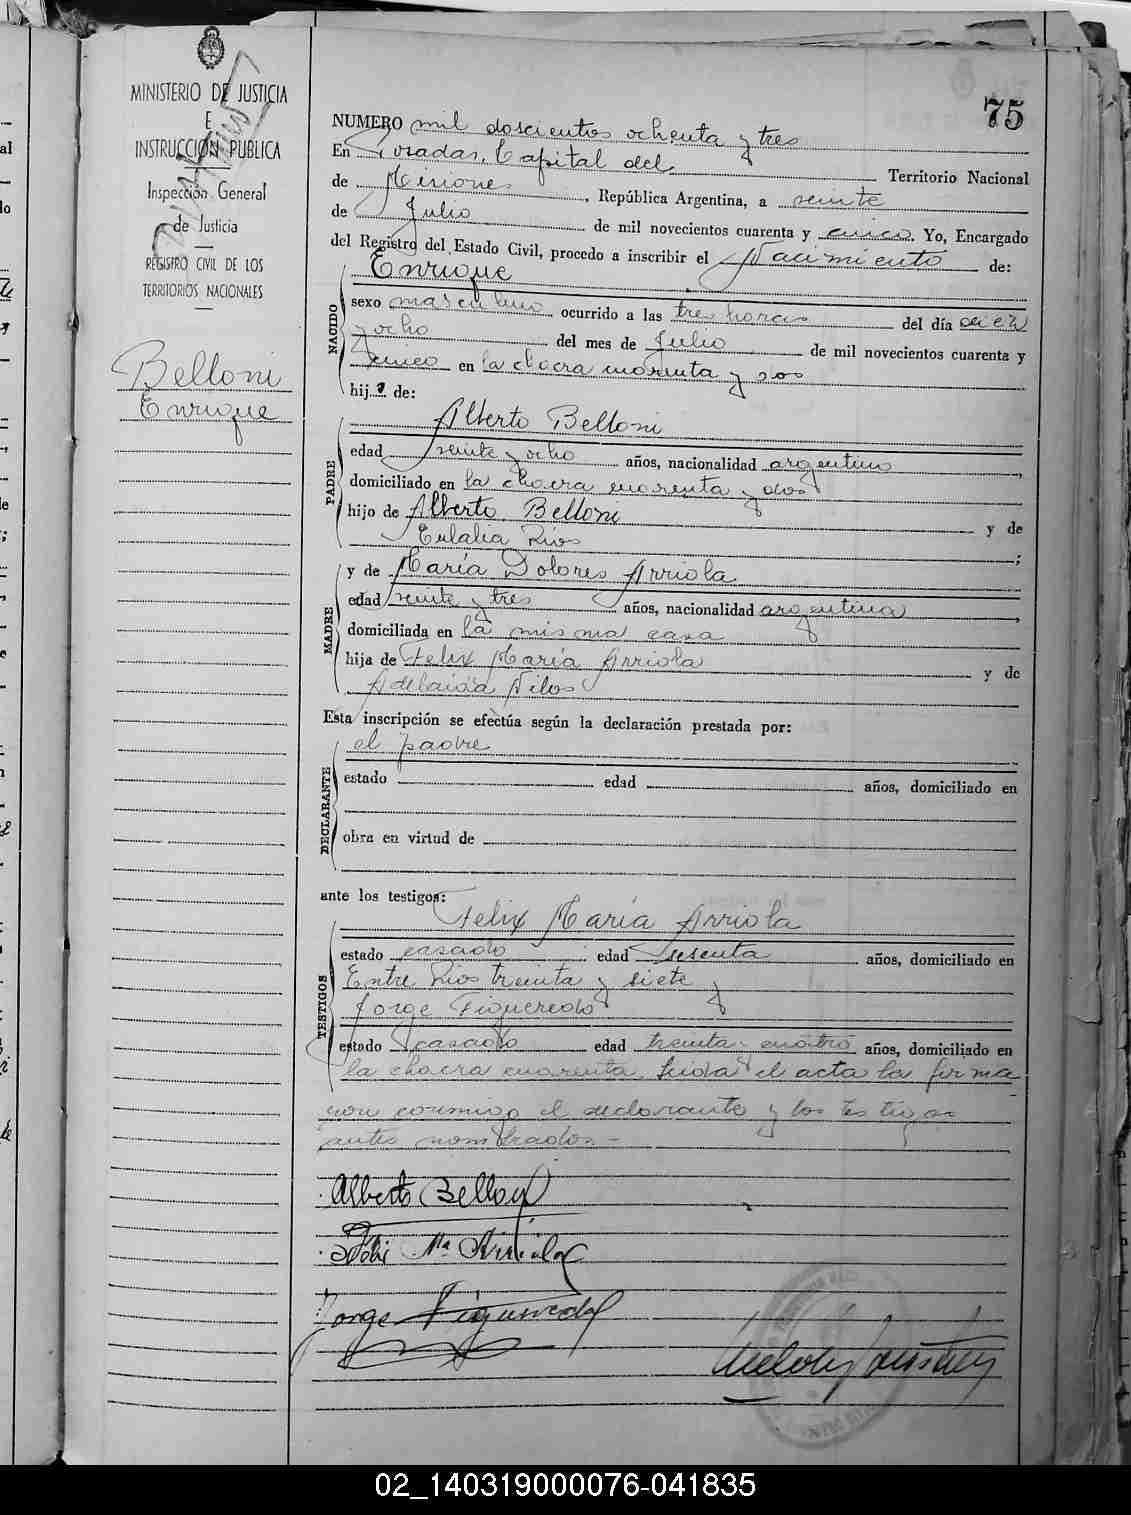 MINISTERIO DE JUSTICIA
E
INSTRUCCIÓN PUBLICA
Inspección General
de Justicia
REGISTRO CIVIL DE LOS
TERRITORIOS NACIONALES
Belloni
Enrique
75
NUMERO mil doscientos ochenta y tres
En Posadas, Capital del Territorio Nacional
de Misiones, República Argentina, a veinte
de Julio de mil novecientos cuarenta y cinco. Yo, Encargado
del Registro del Estado Civil, procedo a inscribir el Nacimiento de:
NACIDO
Enrique
sexo masculino ocurrido a las tres horas del día diez
y ocho del mes de Julio de mil novecientos cuarenta y
cinco en la chacra cuarenta y dos
hijo de:
PADRE
Alberto Belloni
edad veinte y ocho años, nacionalidad argentino,
domiciliado en la chacra cuarenta y dos
hijo de Alberto Belloni y de
Eulalia Rios;
MADRE
y de María Dolores Arriola
edad veinte y tres años, nacionalidad argentina,
domiciliada en la misma casa
hija de Felix María Arriola y de
Adelaida
Esta inscripción se efectúa según la declaración prestada por:
DECLARANTE
el padre
estado edad años, domiciliado en
obra en virtud de
ante los testigos:
TESTIGOS
Felix María Arriola
estado casado edad sesenta años, domiciliado en
Entre Rios treinta y siete y
Jorge Figueredo
estado casado edad treinta y cuatro años, domiciliado en
la chacra cuarenta. Leida el acta la firma
con conmigo el declarante y los testigos
antes nombrados.-
Alberto Belloni
Felix Mª Arriola
Jorge Figueredo
02_140319000076-041835